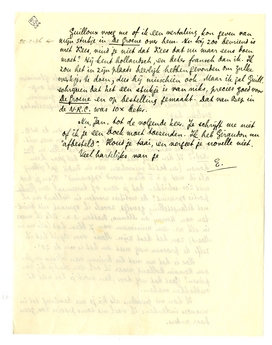 Guilloux vroeg me of ik een vertaling kon geven van
mijn stukje in De Groene over hem. En hij zoo bevriend is
met Kees, vind je niet dat Kees dat nu maar eens doen
moet? Hij kent hollandsch, en beter fransch dan ik. Ik
zou het in zijn plaats heerlijk hebben gevonden om zulke
werkjes te doen; dus hij misschien ook. Maar ik zal Guill.
schrijven dat het een stukje is van niks, precies goed voor
De Groene en op bestelling gemaakt. dat van
de N.R.C. was 10x beter.
En, Jan, tot de volgende keer. Je schrijft me niet
of ik je een boek moet toezenden. Is het Giraudoux nu
"afbesteld"? Houd je taai, en vergeet je novelle niet.
Veel hartelijks van je
E.